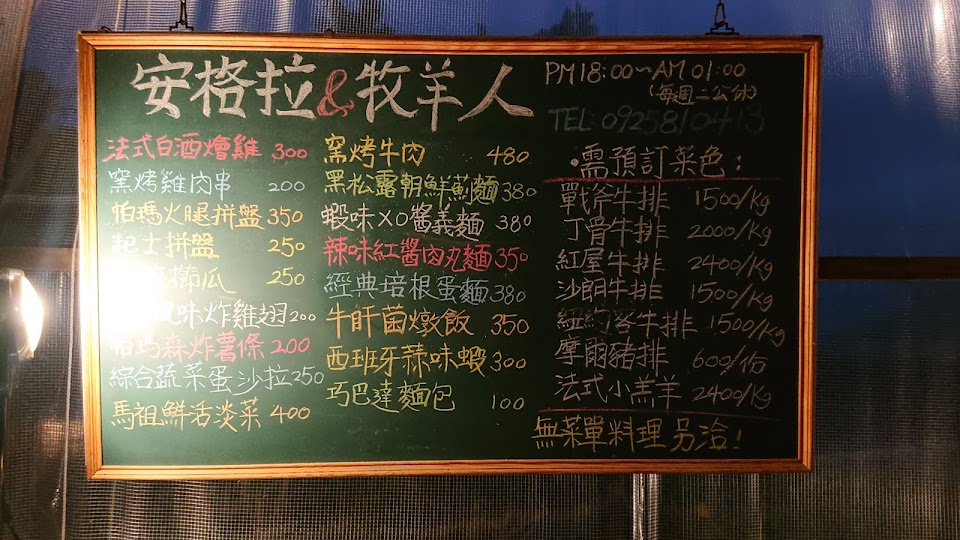 安格拉&牧羊人
PM18:00~AM01:00
(每週二公休)
TEL:0925810413
法式白酒燴雞 300
窯烤雞肉串 200
帕瑪火腿拼盤 350
起士拼盤 250
櫛瓜 250
味炸雞翅 200
帕瑪森炸薯條 200
綜合蔬菜蛋沙拉 250
馬祖鮮活淡菜 400
窯烤牛肉 480
黑松露朝鮮薊麵 380
蝦味XO醬義麵 380
辣味紅醬肉丸麵 350
經典培根蛋麵 380
牛肝菌燉飯 350
西班牙蒜味蝦 300
巧巴達麵包 100
·需預訂菜色:
戰斧牛排 1500/Kg
丁骨牛排 2000/Kg
紅屋牛排 2400/Kg
沙朗牛排 1500/Kg
紐約客牛排 1500/Kg
摩爾豬排 600/份
法式小羔羊 2400/Kg
無菜單料理另洽!